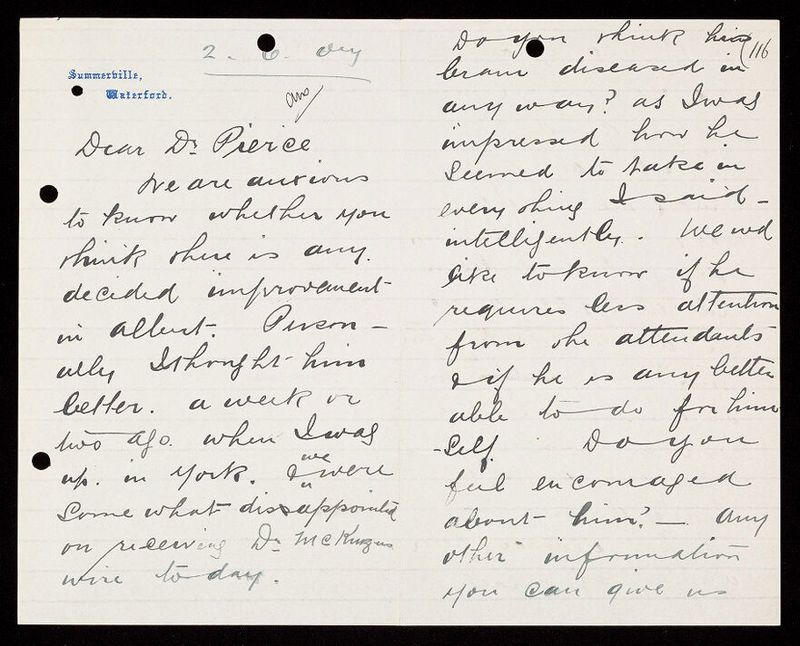 Summerville,
Waterford.
2. 6.
ans
Dear Dr Pierce
We are anxious
to know whether you
think there is any.
decided improvement
in albert. Person-
ally I thought him
better. a week or
two ago. when I was
up. in York. we were
somewhat disappointed
on receiving Dr
wire today.
116
Do you think his
brain diseased in
any way? as I was
impressed how he
seemed to take in
everything I said -
intelligently. We wd
like to know if he
requires less attention
from the attendants
& if he is any better
able to do for him
-self. Do you
feel encouraged
about him? — any
other information
you can give us